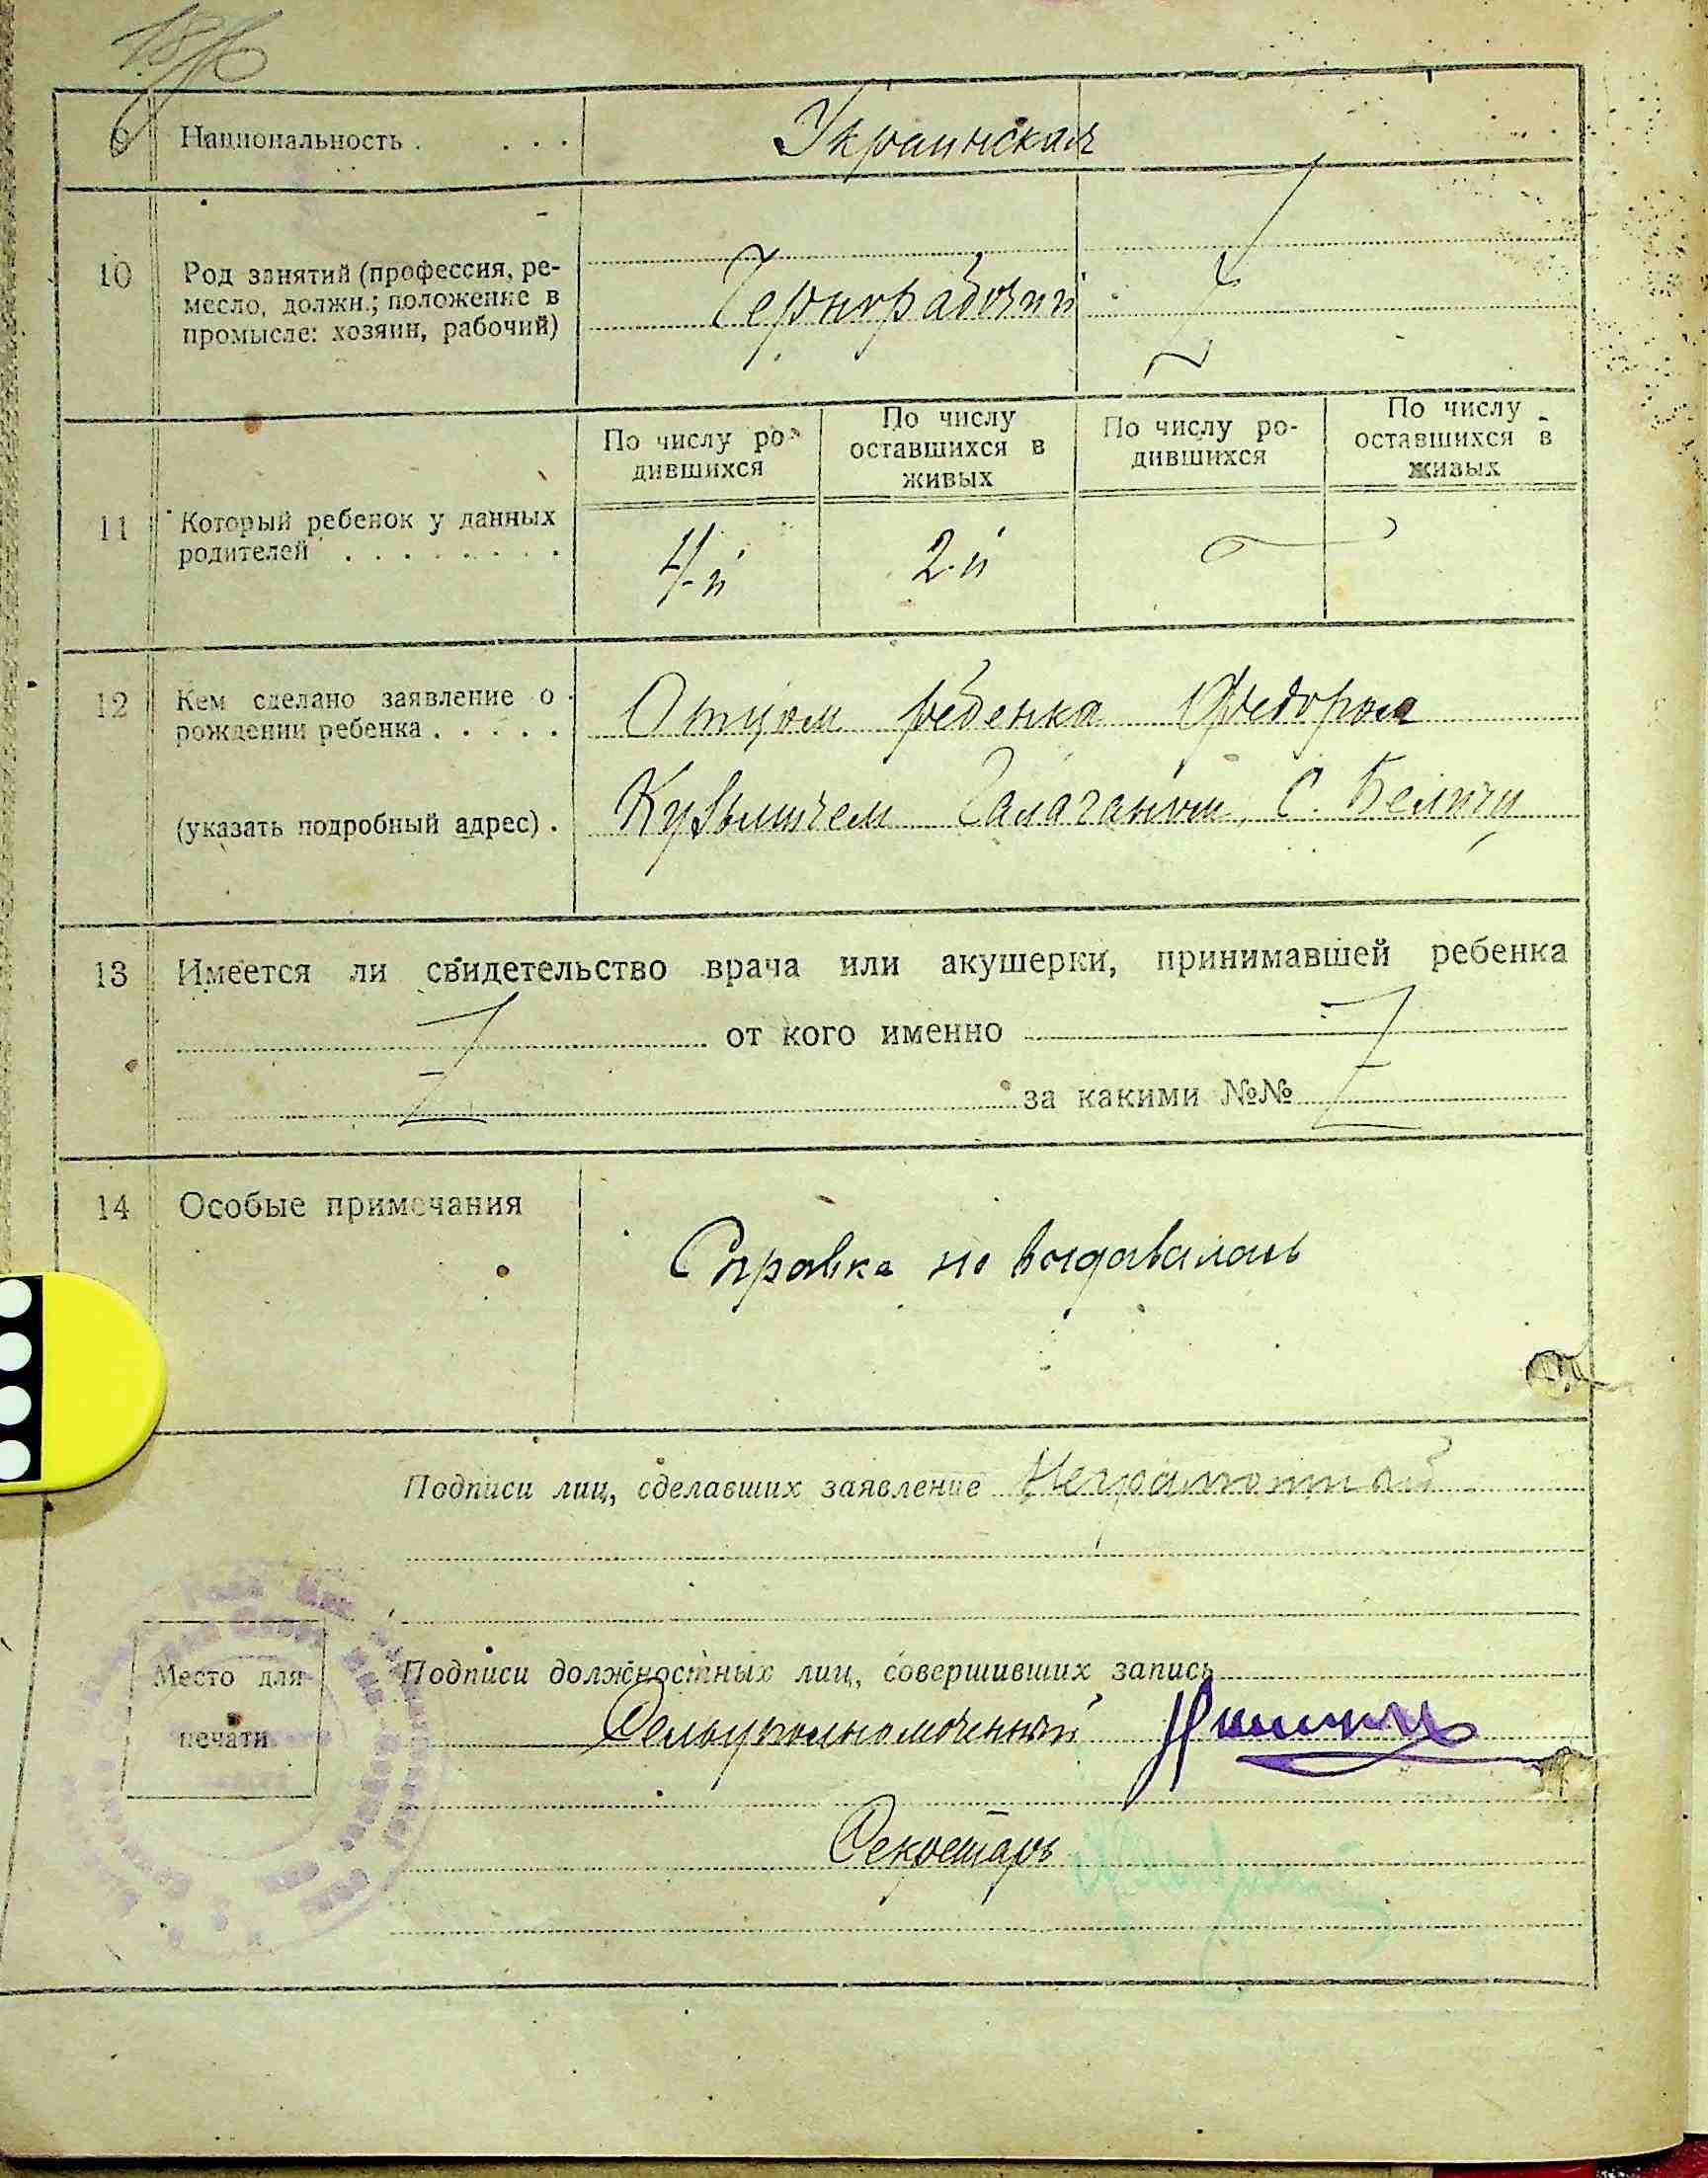 9 Национальность . . . . Украинская
10 Род занятий (профессия, ре-
месло, должн.; положение в
промысле: хозяин, рабочий)
Чернорабочий
По числу ро-
дившихся
По числу
оставшихся в
живых
По числу ро-
дившихся
По числу
оставшихся в
живых
11 Который ребенок у данных
родителей . . . . . . . .
4-й 2-й
12 Кем сделано заявление о
рождении ребенка . . . . .
(указать подробный адрес) .
Отцом ребенка Федором
Кузьмичем Галаганом, С. Беличи
13 Имеется ли свидетельство врача или акушерки, принимавшей ребенка
от кого именно
за какими №№
14 Особые примечания
Справка не выдавалась
Подписи лиц, сделавших заявление Неграмотный
Место для
печати
Подписи должностных лиц, совершивших запись
Сельуполномоченный
Секретарь